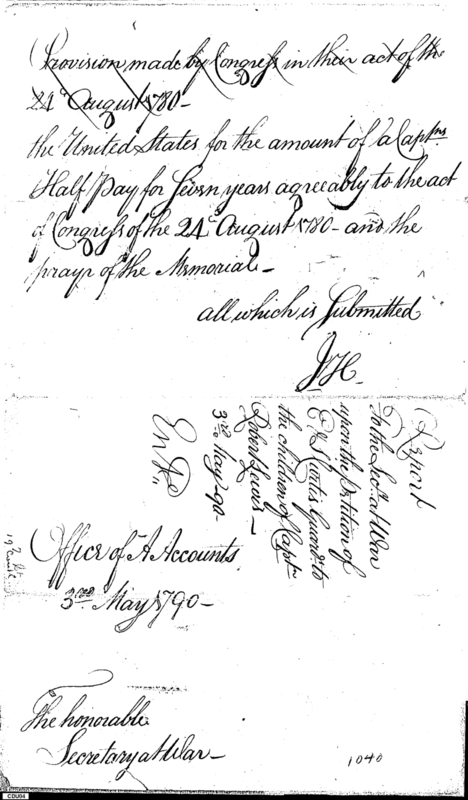 Provision made by Congress in their act of the
24th August 1780 -
the United States for the amount of a Captns
Half Pay for Seven years agreeably to the act
of Congress of the 24th August 1780 - and the
prayr of the Memorial -
all which is Submitted
JH.
Report
To the Secy at War
upon the petition of
Curtis Guardn to
the children of Captn
Robert Lewis -
3rd May - 90 -
Office of A Accounts
3rd May 1790 -
The honorable
Secretary at War -
1040
CDU04